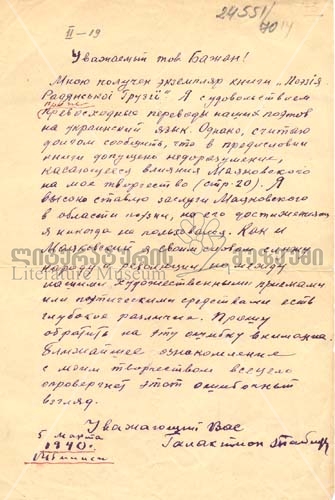 II—19
24551/
7014
Уважаемый тов Бажан!
Мною получен экземпляр книги „Поэзія
Радянської Грузії" Я с удовольствием
превосходные переводы наших поэтов
на украинский язык. Однако, считаю
долгом сообщить, что в предисловии
книги допущено недоразумение,
касающееся влияния Маяковского
на мое творчество (стр. 20). Я
высоко ставлю заслуги Маяковского
в области поэзии, но его достижениями
я никогда не пользовался. Как и
Маяковский я своим словом служу
народу и революции но между
нашими художественными приемами
или поэтическими средствами есть
глубокое различие. Прошу
обратить на эту ошибку внимание.
Ближайшее ознакомление
с моим творчеством всецело
опровергнет этот ошибочный
взгляд.
Уважающий Вас
5 марта Галактион Табидзе
1940 г.
Тбилиси
ლიტერატურის მუზეუმი
Literature Museum